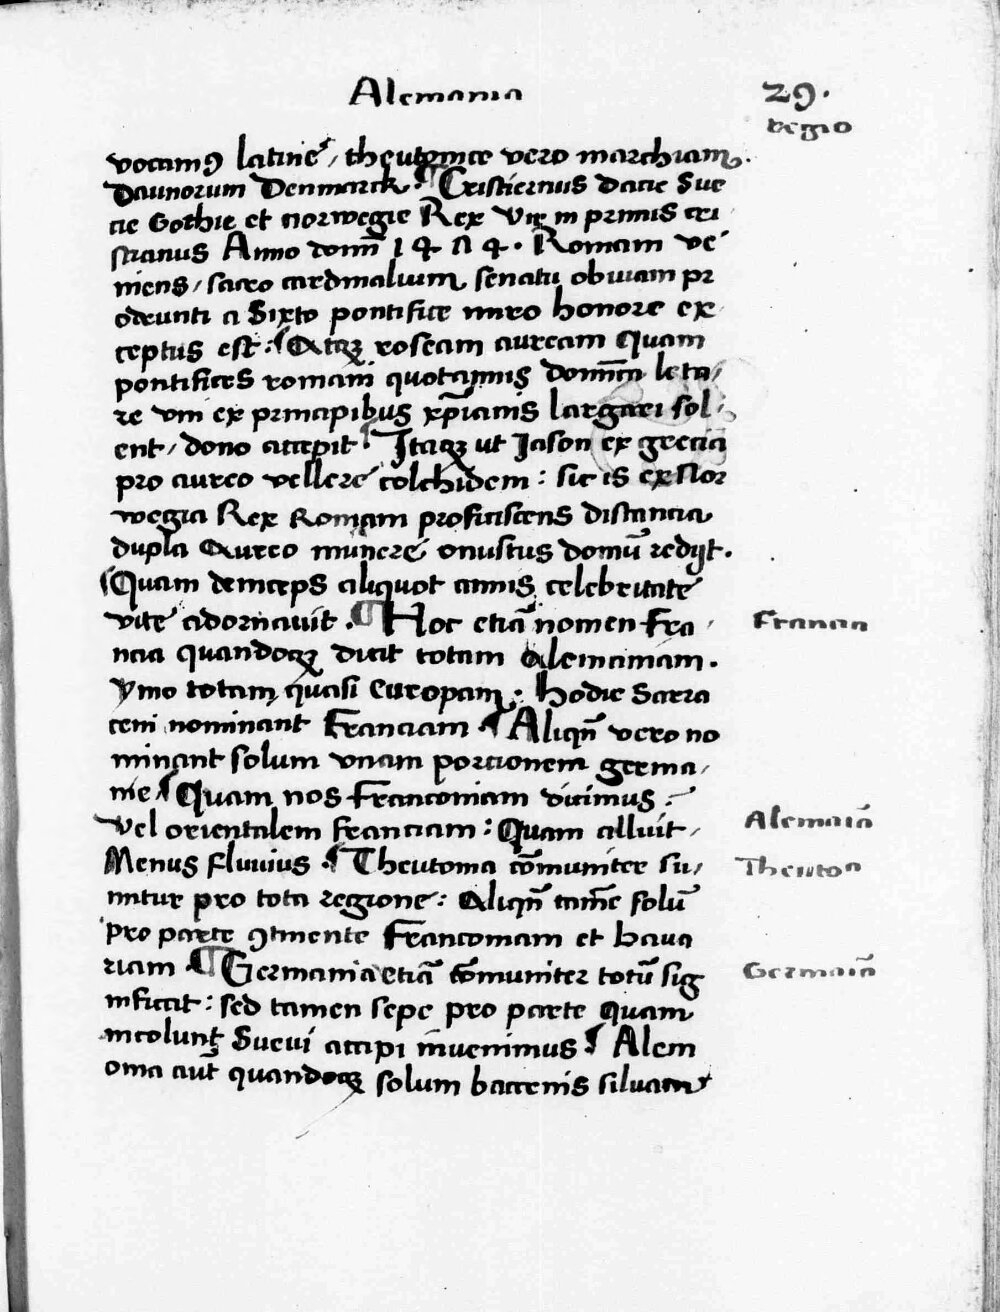 Alemania
29.
regio
vocamꝰ latine / theutonice vero marchiam
Daunorum Denmarck. ¶ Cristiernus dacie Sue
cie Gothie et norwegie Rex Vir in primis cri
stianus Anno domī 1474. Romam ve
niens / sacro cardinalium senatu obuiam pr
odeunti a Sixto pontifice miro honore ex
ceptus est: ¶ Atqꝫ roseam auream quam
pontifices romani quotannis domīca leta/
re vni ex principibus xp̄ianis largiri sol
ent / dono accepit. ¶ Itaqꝫ ut Jason ex grecia
pro aureo vellere colchidem: sic is ex Nor
wegia Rex Romam proficiscens distancia
dupla Aureo munere onustus domū redijt.
¶ Quam deinceps aliquot annis celebritate
vite adornauit. ¶ Hoc etiā nomen Fra
Francia
ncia quandoqꝫ dicit totam Alemaniam.
ymo totam quasi Europam: hodie Sarra
ceni nominant Franciam. ¶ Aliqn̄ vero no
minant solum vnam porcionem germa/
nie / ¶ Quam nos Franconiam dicimus:
vel orientalem Franciam: Quam alluit
Alemaīa
Menus fluuius. ¶ Theutonia cōmuniter su/
Theutoa
mitur pro tota regione: Aliqn̄ tamē solū
pro parte ꝯtinente Franconiam et baua
riam. ¶ Germania etiā cōmuniter totū sig
Germaīa
nificat: sed tamen sepe pro parte quam
incolunt Suevi accipi īnuenimus. ¶ Alem
onia aut̄ quandoqꝫ solum bacenis siluam